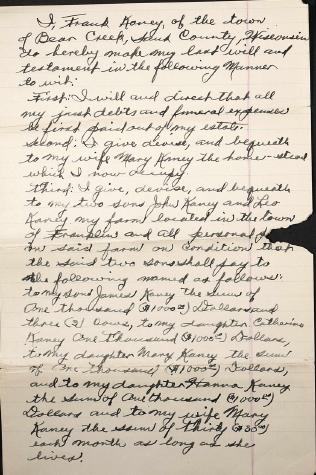 I, Frank Kaney, of the town
of Bear Creek, Sauk County, Wisconsin
do hereby make my last will and
testament in the following Manner
to wit;
First: I will and direct that all
my just debts and funeral expenses
be first paid out of my estate.
Second: I give devise, and bequeath
to my wife Mary Kaney the home-stead
which I now occupy.
Third: I give, devise, and bequeath
to my two sons John Kaney and Leo
Kaney my farm located in the town
of Franklin and all personal
on said farm on condition that
the said two sons shall pay to
the following named as follows:
to my son James Kaney the sum of
One thousand ($1000.00) Dollars and
three (3) Cows, to my daughter Catherine
Kaney One thousand ($1000.00) Dollars,
to my daughter Mary Kaney the sum
of One thousand ($1000.00) Dollars,
and to my daughter Hanna Kaney
the sum of One thousand ($1000.00)
Dollars and to my wife Mary
Kaney the sum of thirty ($30.00)
each month as long as she
lives.